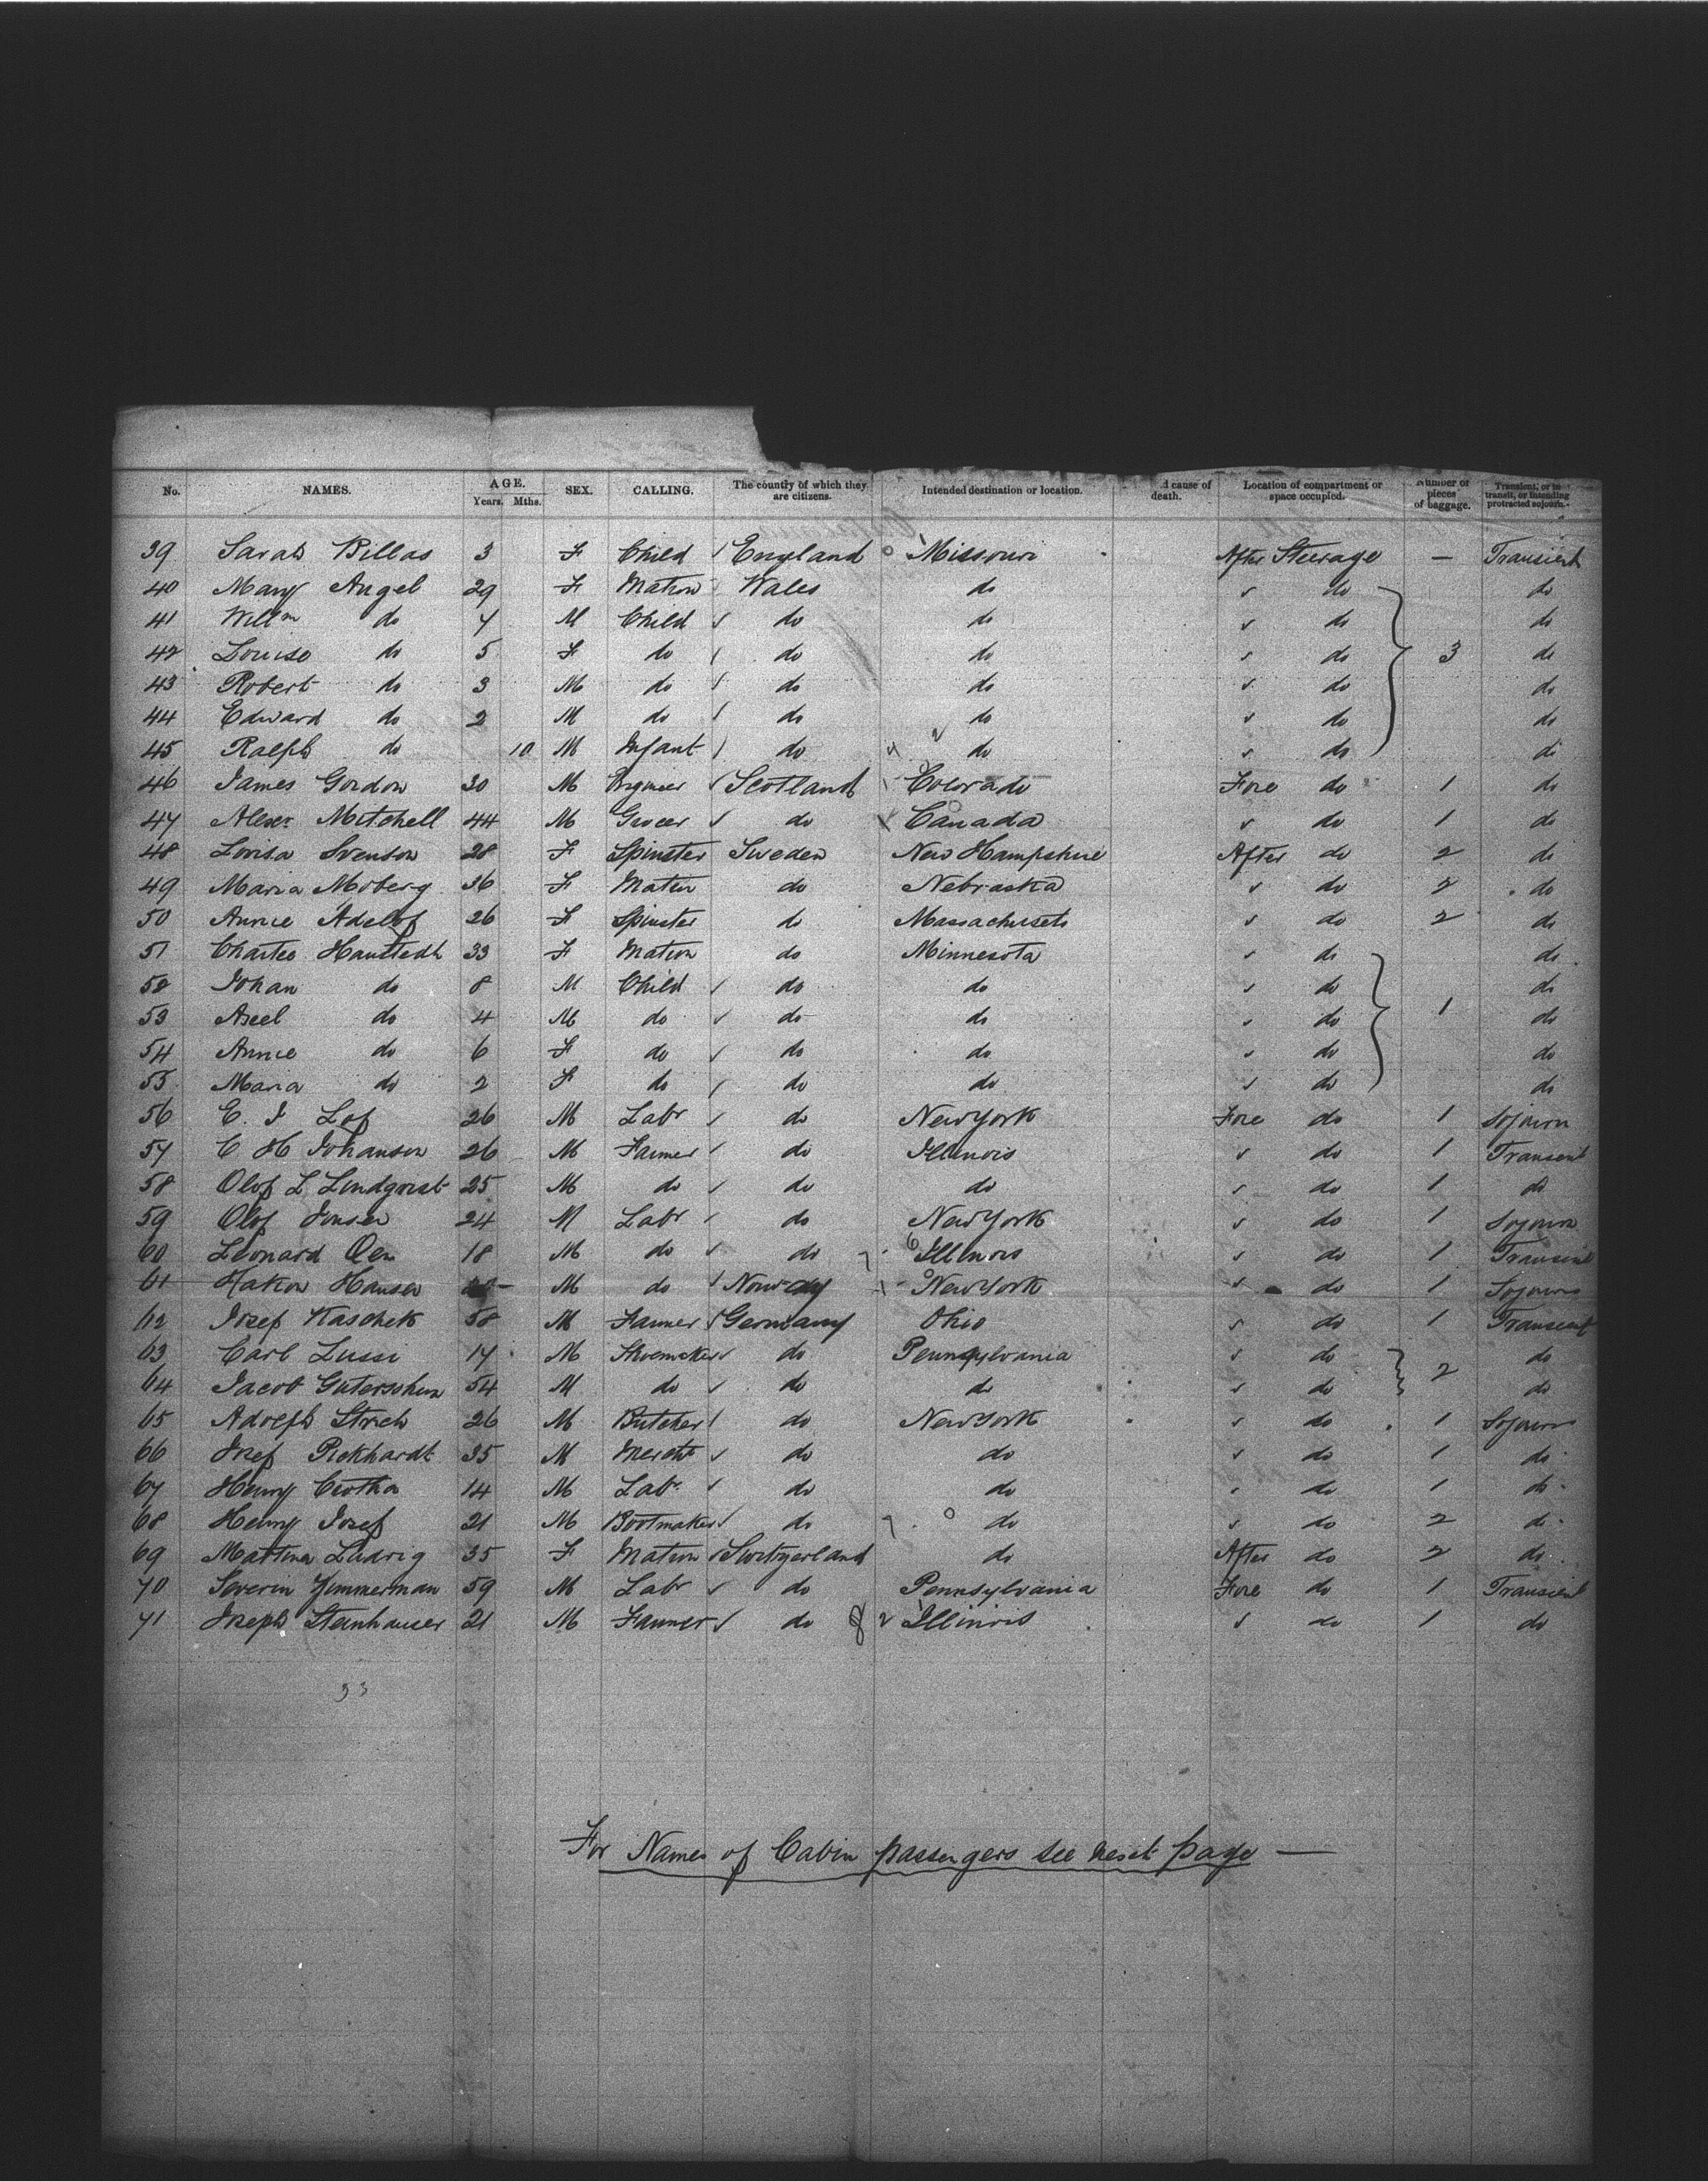 No. NAMES. AGE. Years. Mths. SEX. CALLING. The country of which they are citizens. Intended destination or location. d cause of death. Location of compartment or space occupied. Number of pieces of baggage. Transient, or in transit, or intending protracted sojourn.
39 Sarah Billas 3 F Child England Missouri After Steerage — Transient
40 Mary Angel 29 F Matron Wales do " do do
41 Willm do 7 M Child do do " do do
42 Louise do 5 F do do do " do 3 do
43 Robert do 3 M do do do " do do
44 Edward do 2 M do do do " do do
45 Ralph do 10 M Infant do do " do do
46 James Gordon 30 M Engineer Scotland Colorado Fore do 1 do
47 Alexr Mitchell 44 M Grocer do Canada " do 1 do
48 Lovisa Svenson 28 F Spinster Sweden New Hampshire After do 2 do
49 Maria Moberg 36 F Matrn do Nebraska " do 2 do
50 Annie Adelof 26 F Spinster do Massachusets " do 2 do
51 33 F Matron do Minnesota " do do
52 Johan do 8 M Child do do " do do
53 Axel do 4 M do do do " do 1 do
54 Annie do 6 F do do do " do do
55 Maria do 2 F do do do " do do
56 E. J Lof 26 M Labr do New York Fore do 1 Sojourn
57 C H Johanson 26 M Farmer do Illinois " do 1 Transient
58 Olof L Lindqvist 25 M do do do " do 1 do
59 Olof Jonsen 24 M Labr do New York " do 1 Sojourn
60 Leonard 18 M do do Illinois " do 1 Transient
61 Hakon Hansen M do Norway New York " do 1 Sojourn
62 Josef Kaschek 58 M Farmer Germany Ohio " do 1 Transient
63 Carl Lussi 17 M Shoemaker do Pennsylvania " do do
64 Jacob 54 M do do do " do 2 do
65 Adolph 26 M Butcher do New York " do 1 Sojourn
66 Josef Pickhardt 35 M Mercht do do " do 1 do
67 Henry 14 M Labr do do " do 1 do
68 Henry Josef 21 M Bootmaker do do " do 2 do
69 Ludvig 35 F Matron Switzerland do After do 2 do
70 Severin Zimmerman 59 M Labr do Pennsylvania Fore do 1 Transient
71 Joseph Steinhauser 21 M Farmer do 8 2 Illinois " do 1 do
33
For Names of Cabin passengers see next page —